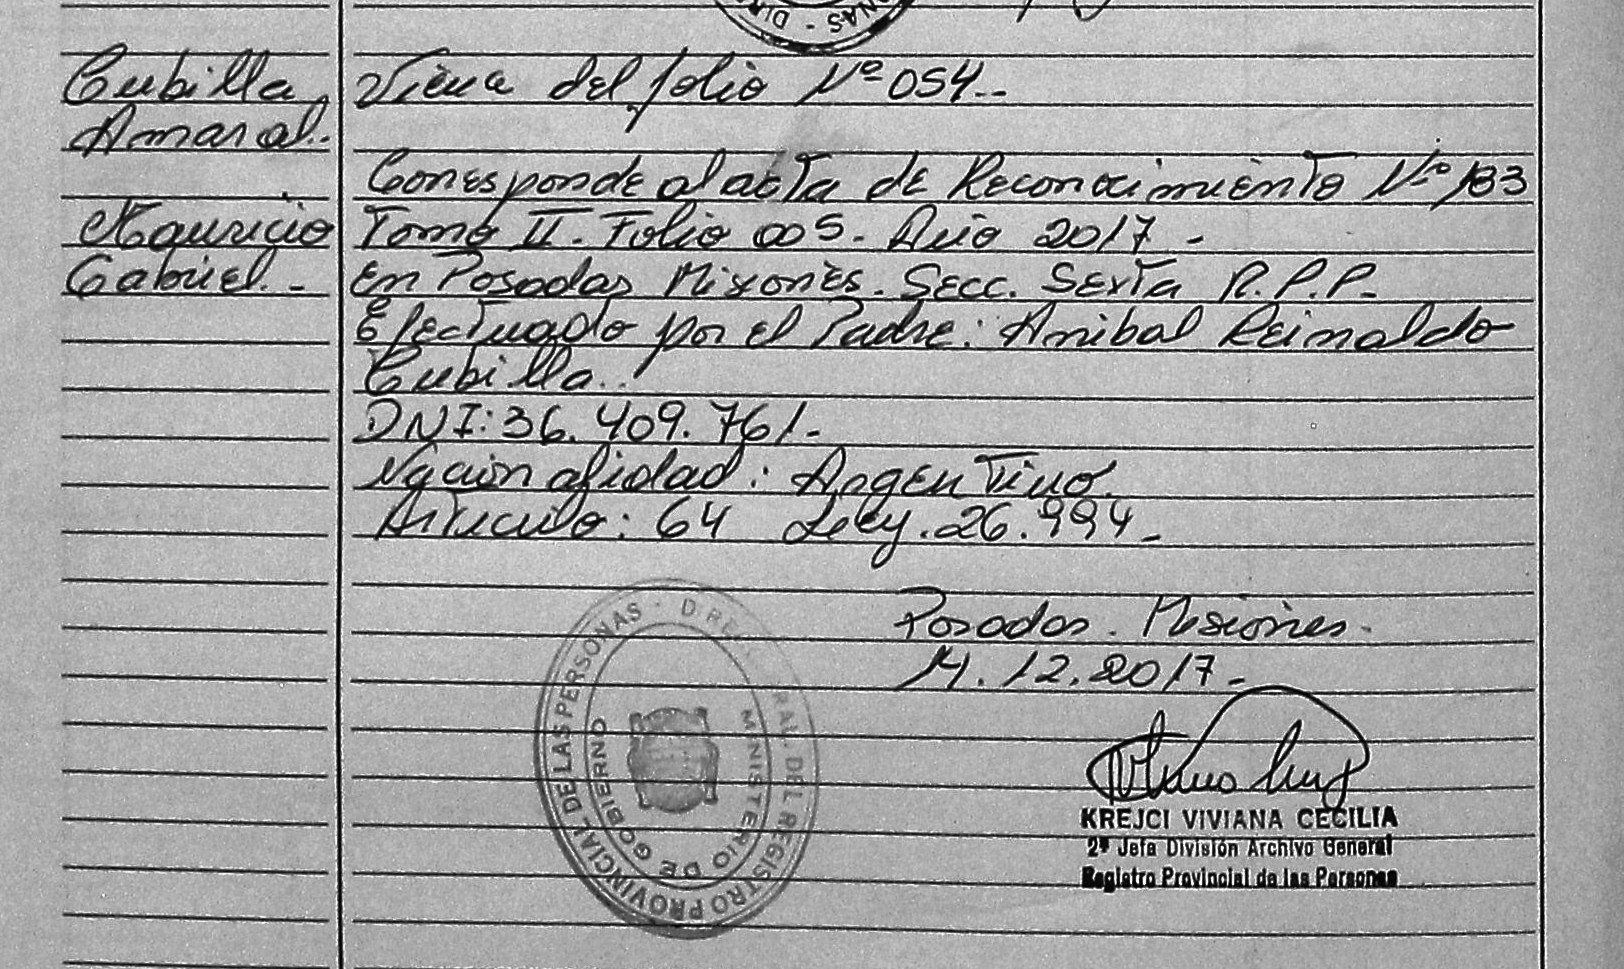 Cubilla
Amaral.-
Mauricio
Gabriel.-
Viene del folio Nº 054.-
Corresponde al acta de Reconocimiento Nº 183
Tomo II. Folio 005. Año 2017 -
En Posadas Misiones. Secc. Sexta R.P.P.-
Efectuado por el Padre: Anibal Reinaldo
Cubilla..
DNI: 36.409.761.-
Nacionalidad: Argentino.
Articulo: 64 Ley. 26.994.-
Posadas. Misiones.
14.12.2017.-
KREJCI VIVIANA CECILIA
2ª Jefa División Archivo General
Registro Provincial de las Personas
REGISTRO PROVINCIAL DE LAS PERSONAS
MINISTERIO DE GOBIERNO